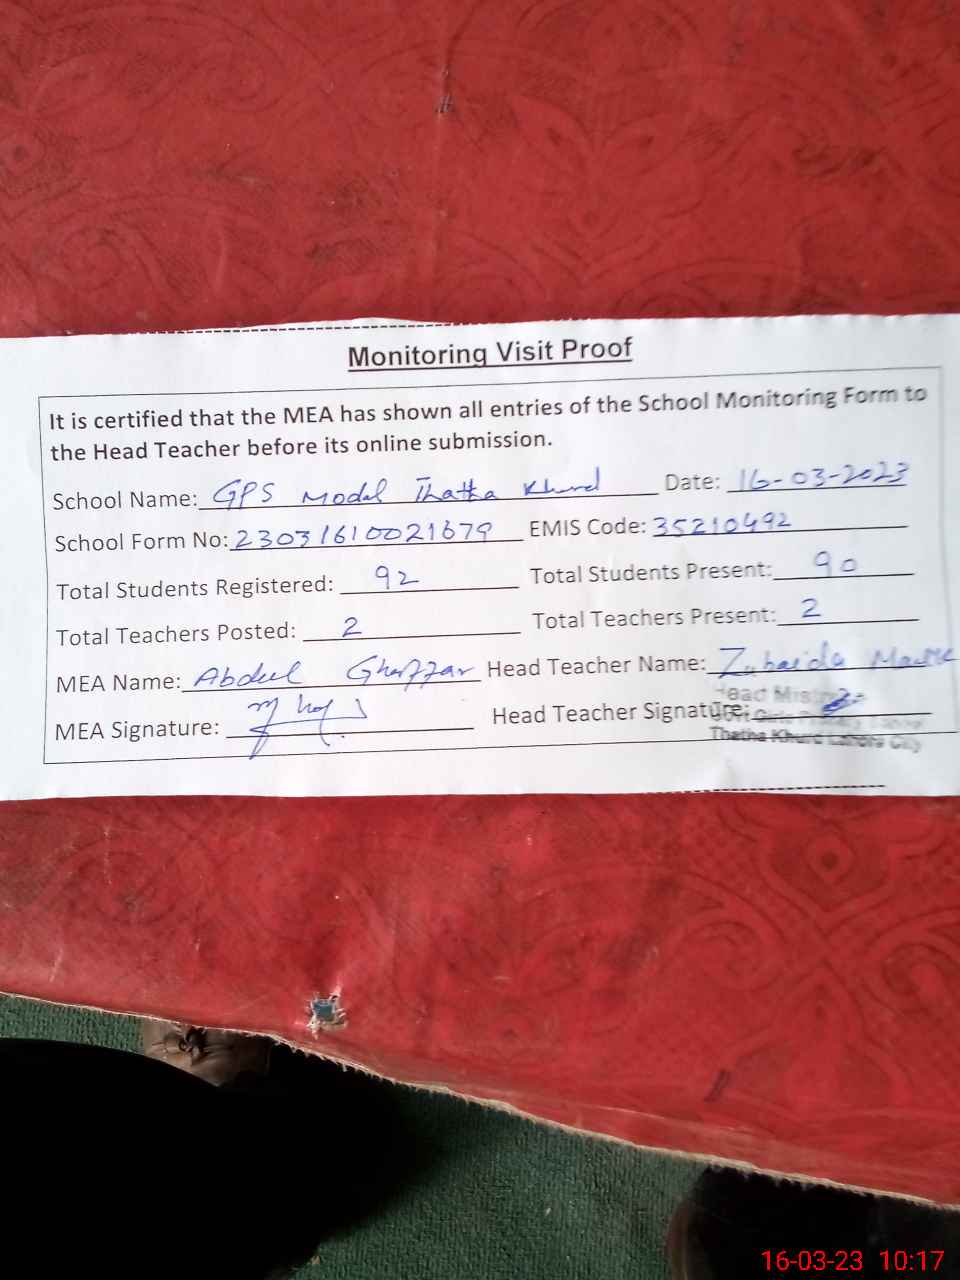 Monitoring Visit Proof
It is certified that the MEA has shown all entries of the School Monitoring Form to
the Head Teacher before its online submission.
School Name: GPS Model Thatha Khurd Date: 16-03-2023
School Form No: 23031610021679 EMIS Code: 35210492
Total Students Registered: 92 Total Students Present: 90
Total Teachers Posted: 2 Total Teachers Present: 2
MEA Name: Abdul Ghaffar Head Teacher Name: Zubaida
MEA Signature: Head Teacher Signature:
Head
Govt Girls Primary School
Thatha Khurd Lahore City
16-03-23 10:17